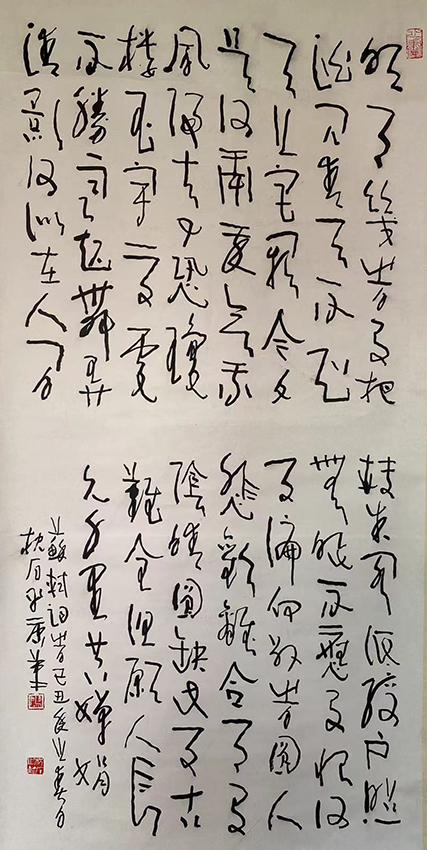 明月幾時有把
酒問青天不知
天上宮闕今夕
是何年我欲乘
風歸去又恐瓊
樓玉宇高處
不勝寒起舞弄
清影何似在人間
轉朱閣低綺戶照
無眠不應有恨何
事偏向別時圓人
悲歡離合月有
陰晴圓缺此事古
難全但願人長
久千里共嬋娟
蘇軾詞時己丑之春月
枕石